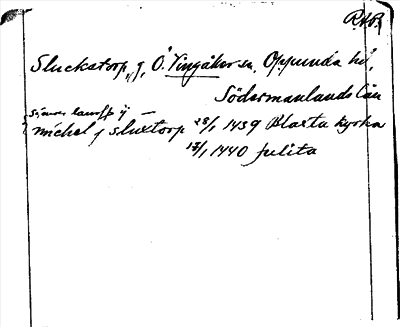 Sluckstorp, g, Ö. Vingåker sn, Oppunda hd,
Södermanlands län
michel j sluxtorp 28/1 1439 Blaxta kyrka
17/1 1440 Julita